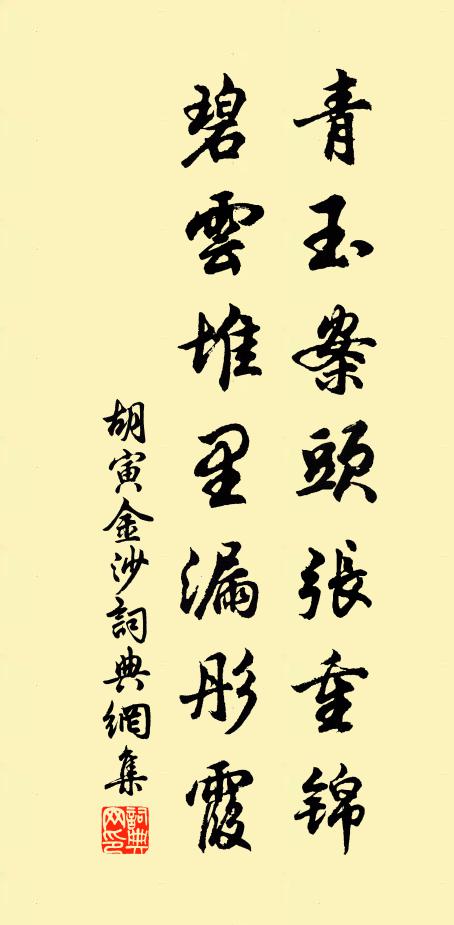 青玉案頭張重锦
碧雲堆里漏彤霞
胡寅金沙詞典網集
詞典网印